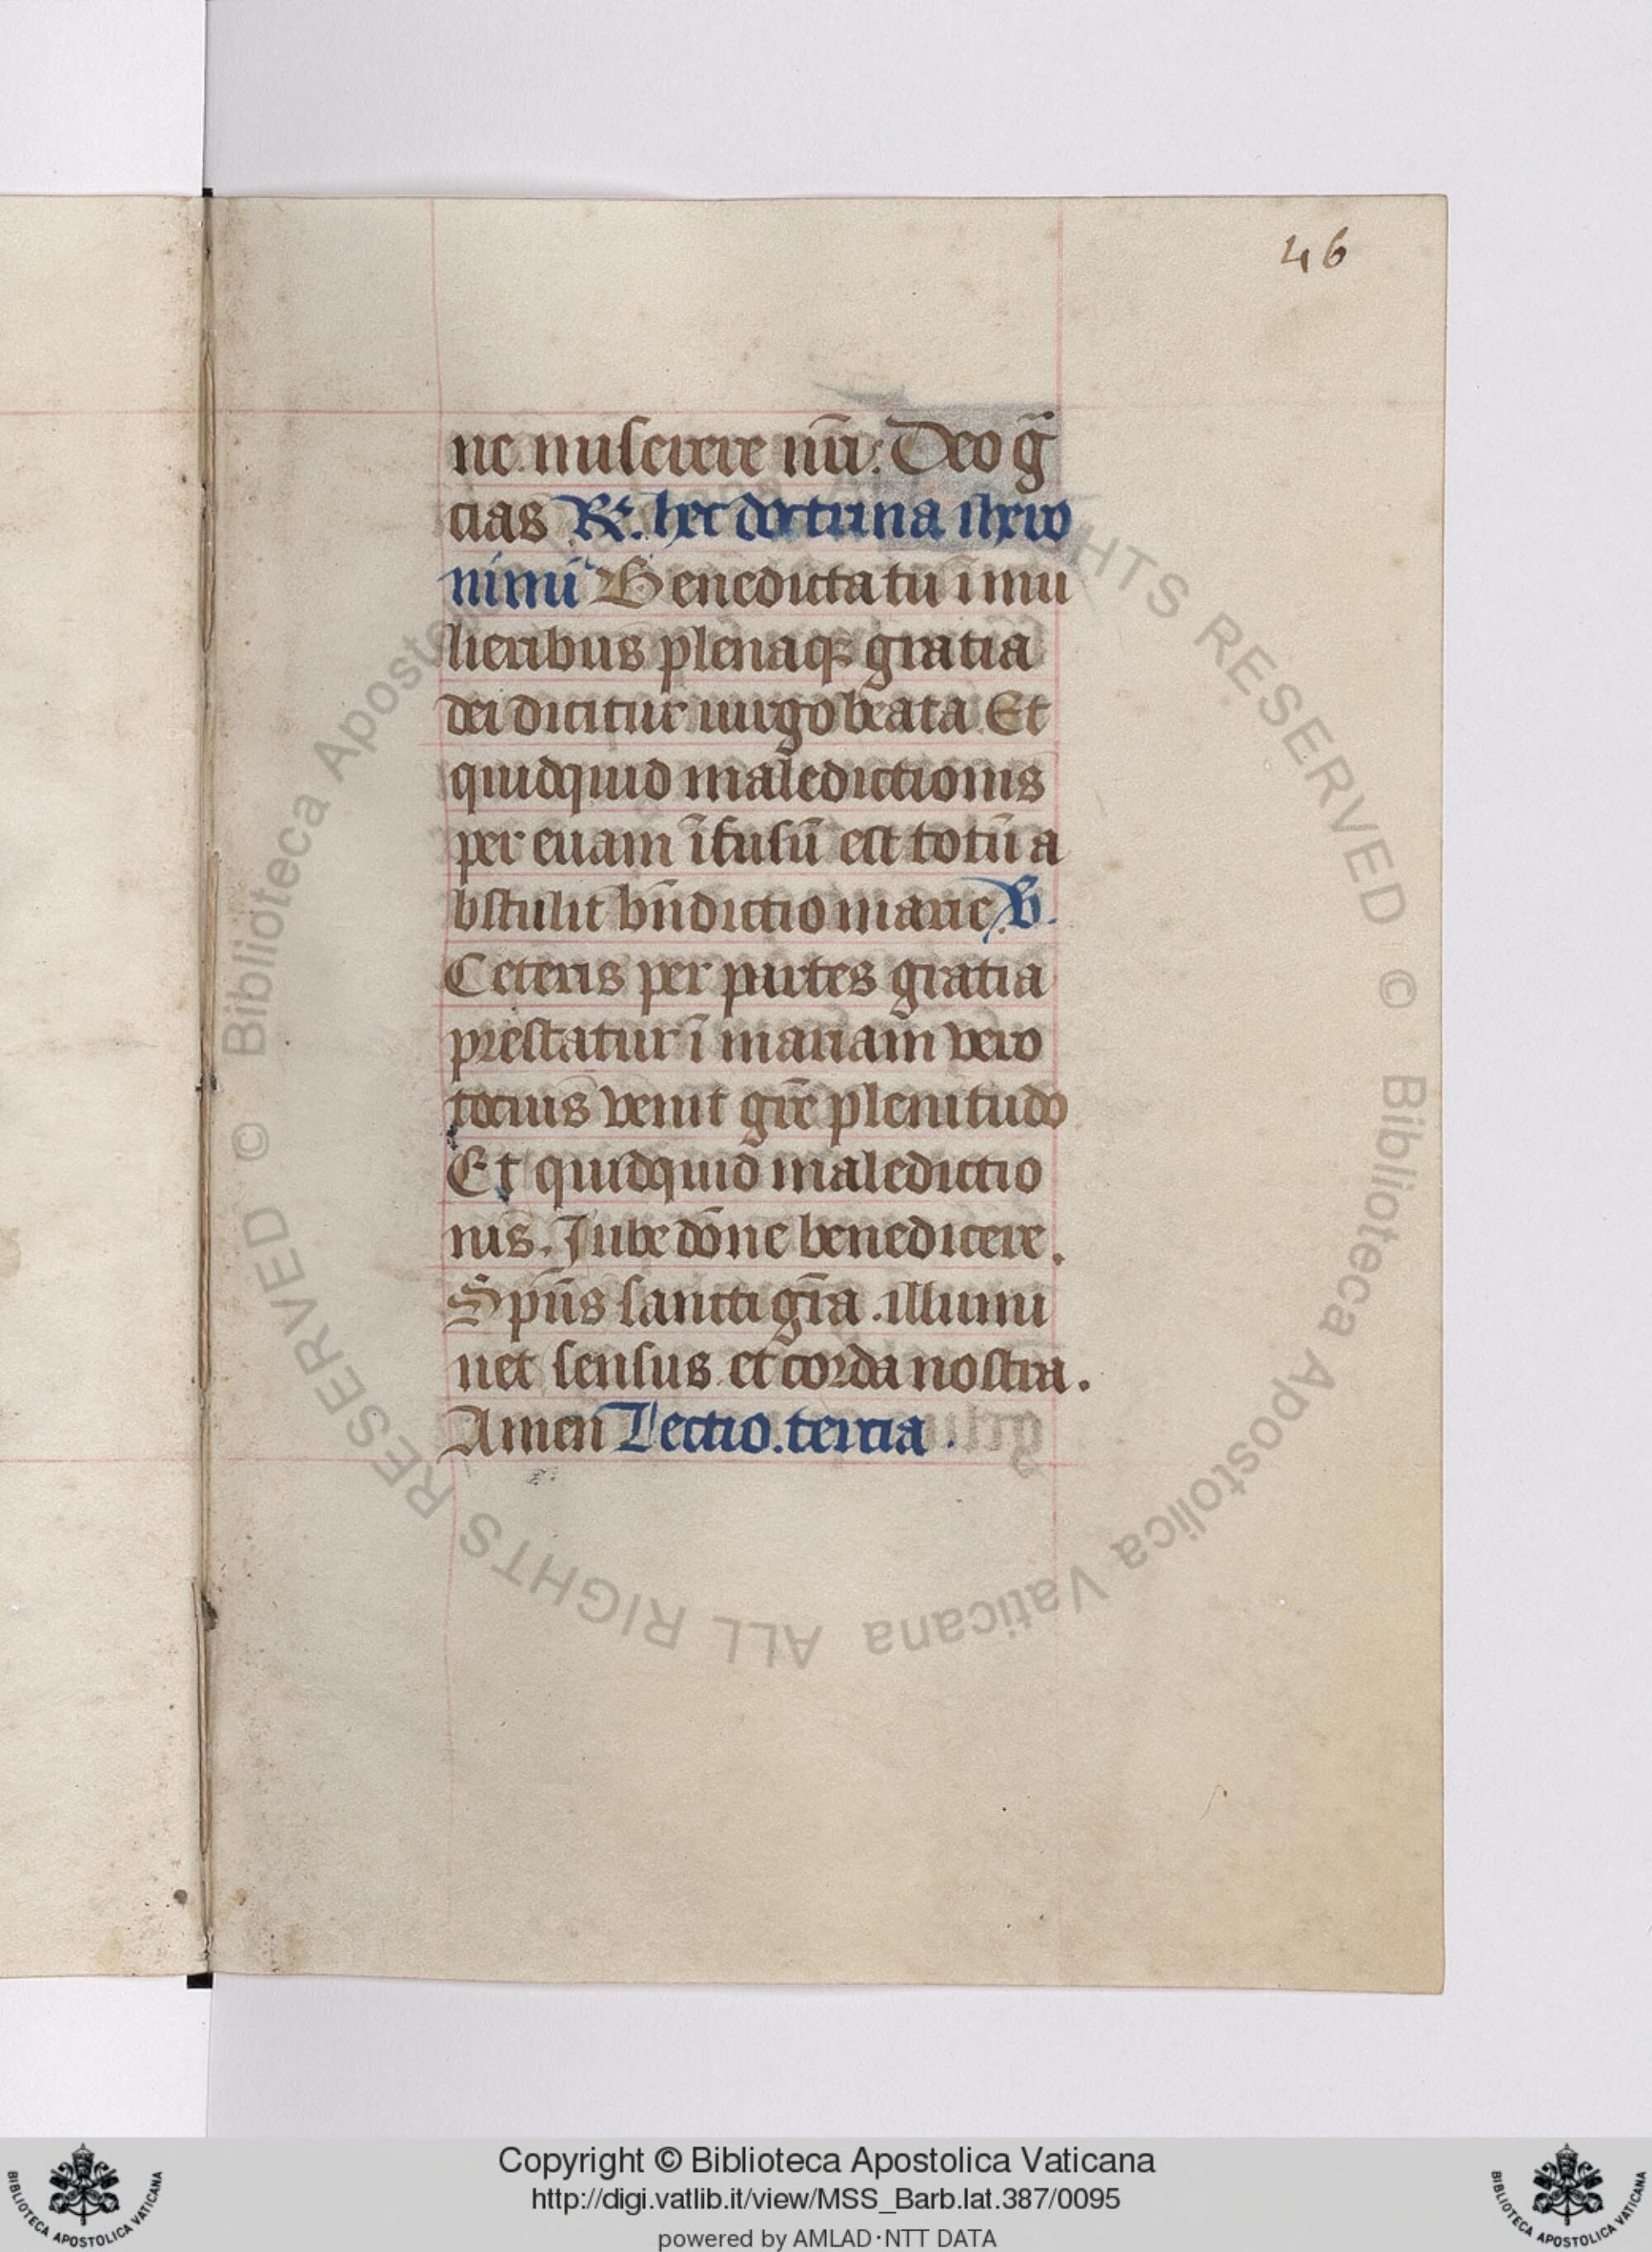 46
ne miserere nr̄i: Deo gr̄a
cias R̷. hec doctrina ihero
nimi Benedicta tu ī mu
lieribus plenaqꝫ gratia
dei dicitur uirgo beata Et
quidquid maledictionis
per euam īfusū est totū a
bstulit bn̄dictio marie V̷.
Ceteris per partes gratia
prestatur ī mariam vero
tocius venit gr̄e plenitudo
Et quidquid maledictio
nis. Jube dōne benedicere.
Sp̄us sancti gr̄a. illumi
net sensus et corda nostra.
Amen Lectio. tercia.
© Biblioteca Apostolica Vaticana ALL RIGHTS RESERVED © Biblioteca Apostolica Vaticana ALL RIGHTS RESERVED
Copyright © Biblioteca Apostolica Vaticana
http://digi.vatlib.it/view/MSS_Barb.lat.387/0095
powered by AMLAD·NTT DATA
BIBLIOTECA APOSTOLICA VATICANA
BIBLIOTECA APOSTOLICA VATICANA